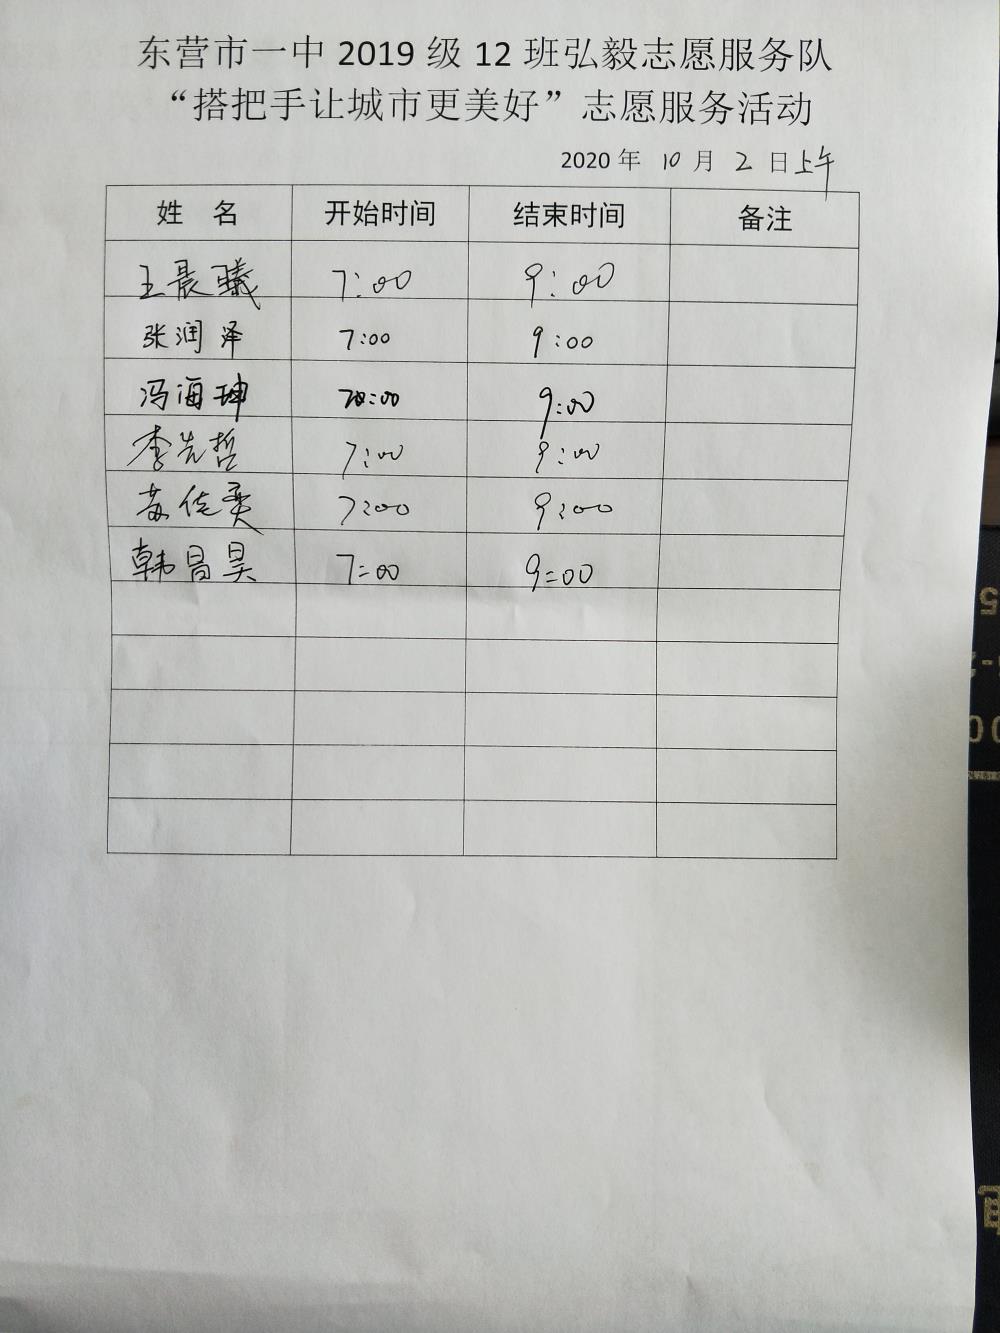 东营市一中 2019 级 12 班弘毅志愿服务队
“搭把手让城市更美好”志愿服务活动
2020 年 10 月 2 日上午
姓 名 开始时间 结束时间 备注
王晨曦 7:00 9:00
张润泽 7:00 9:00
冯海珅 :00 9:00
李先哲 7:00 9:00
苏佳奕 7:00 9:00
韩昌昊 7:00 9:00
5
00